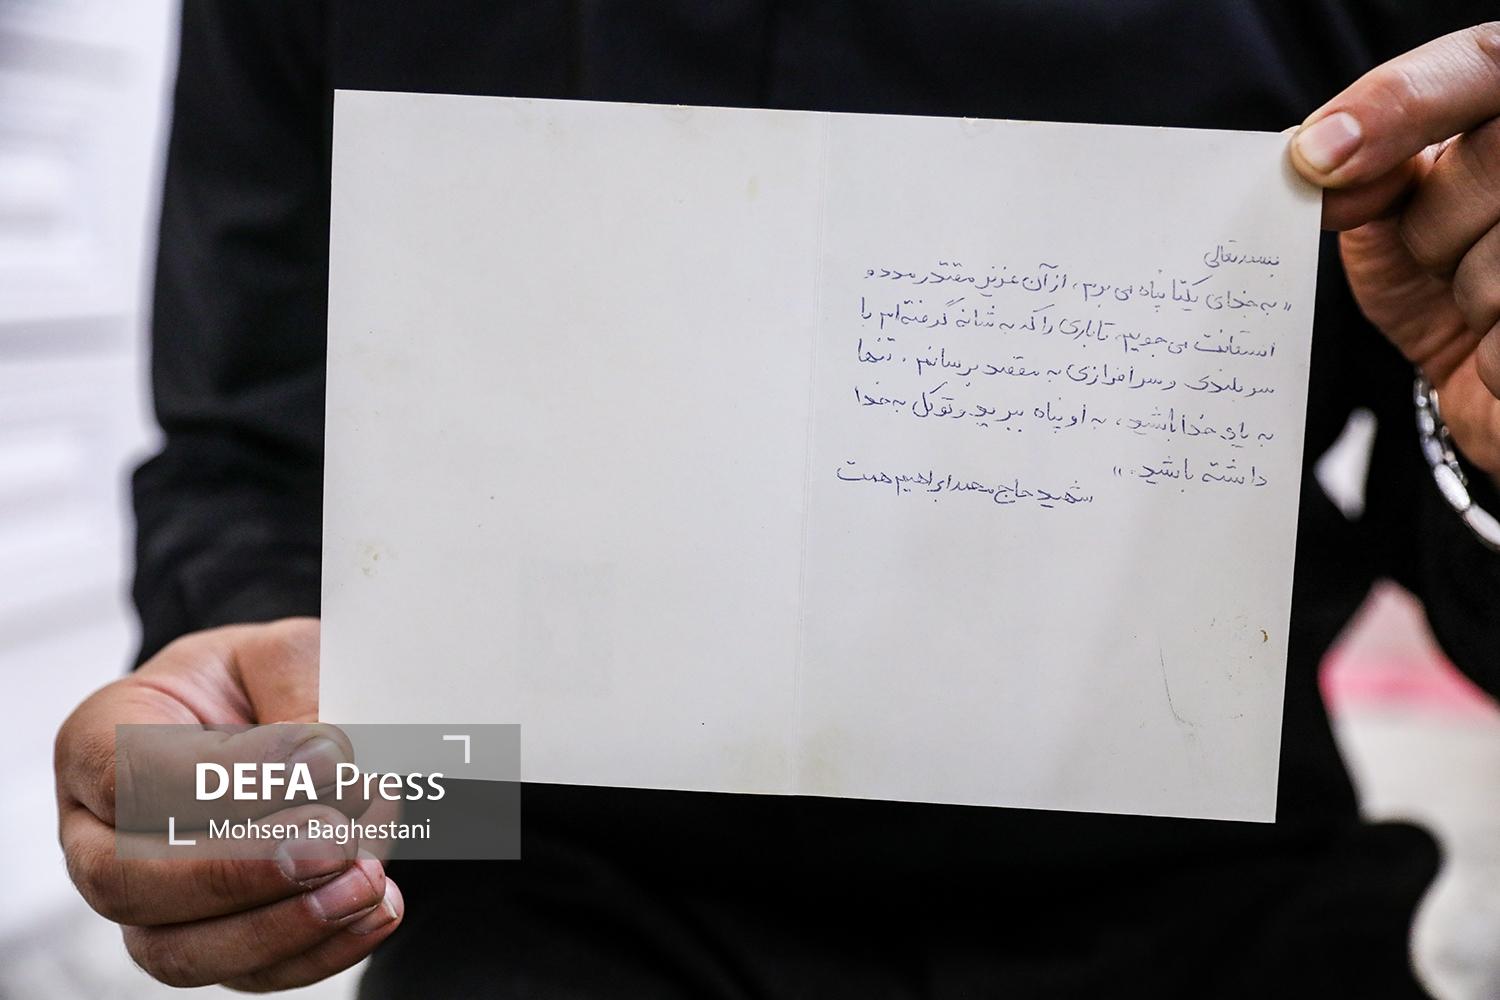 بسمه تعالی
« به خدای یکتا پناه می برم، از آن عزیز مقتدر مدد و
استعانت می جویم تا باری را که به شانه گرفته‌ام با
سربلندی و سرافرازی به مقصد برسانم. تنها
به یاد خدا باشید، به او پناه ببرید و توکل به خدا
داشته باشید. »
شهید حاج محمد ابراهیم همت
DEFA Press
Mohsen Baghestani